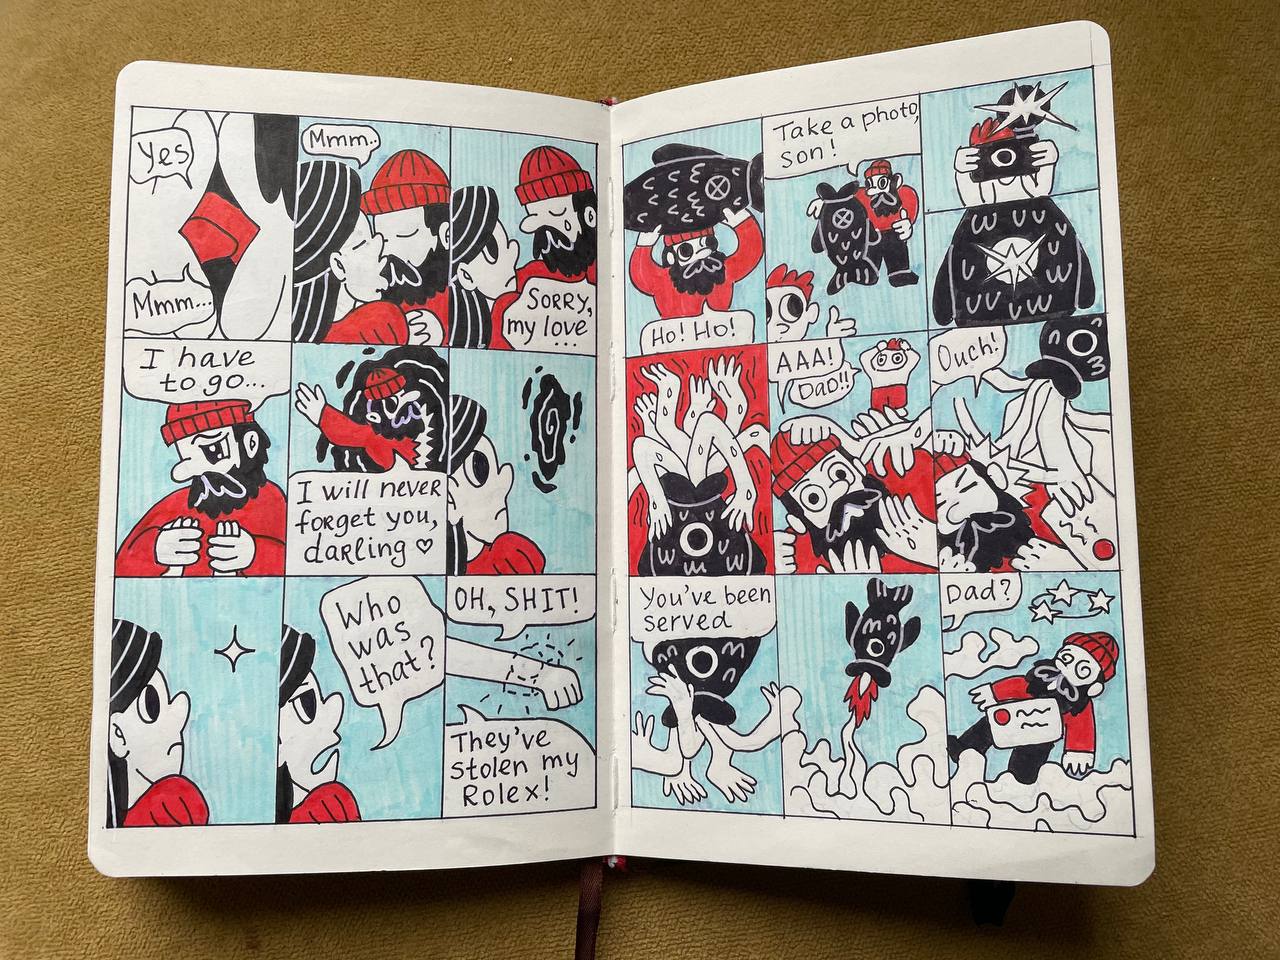 Yes
Mmm...
Mmm..
SORRY,
my love
...
I have
to go...
I will never
forget you,
darling ♡
Who
was
that?
OH, SHIT!
They've
stolen my
Rolex!
Ho! Ho!
Take a photo,
son!
AAA!
DAD!!
Ouch!
You've been
served
Dad?